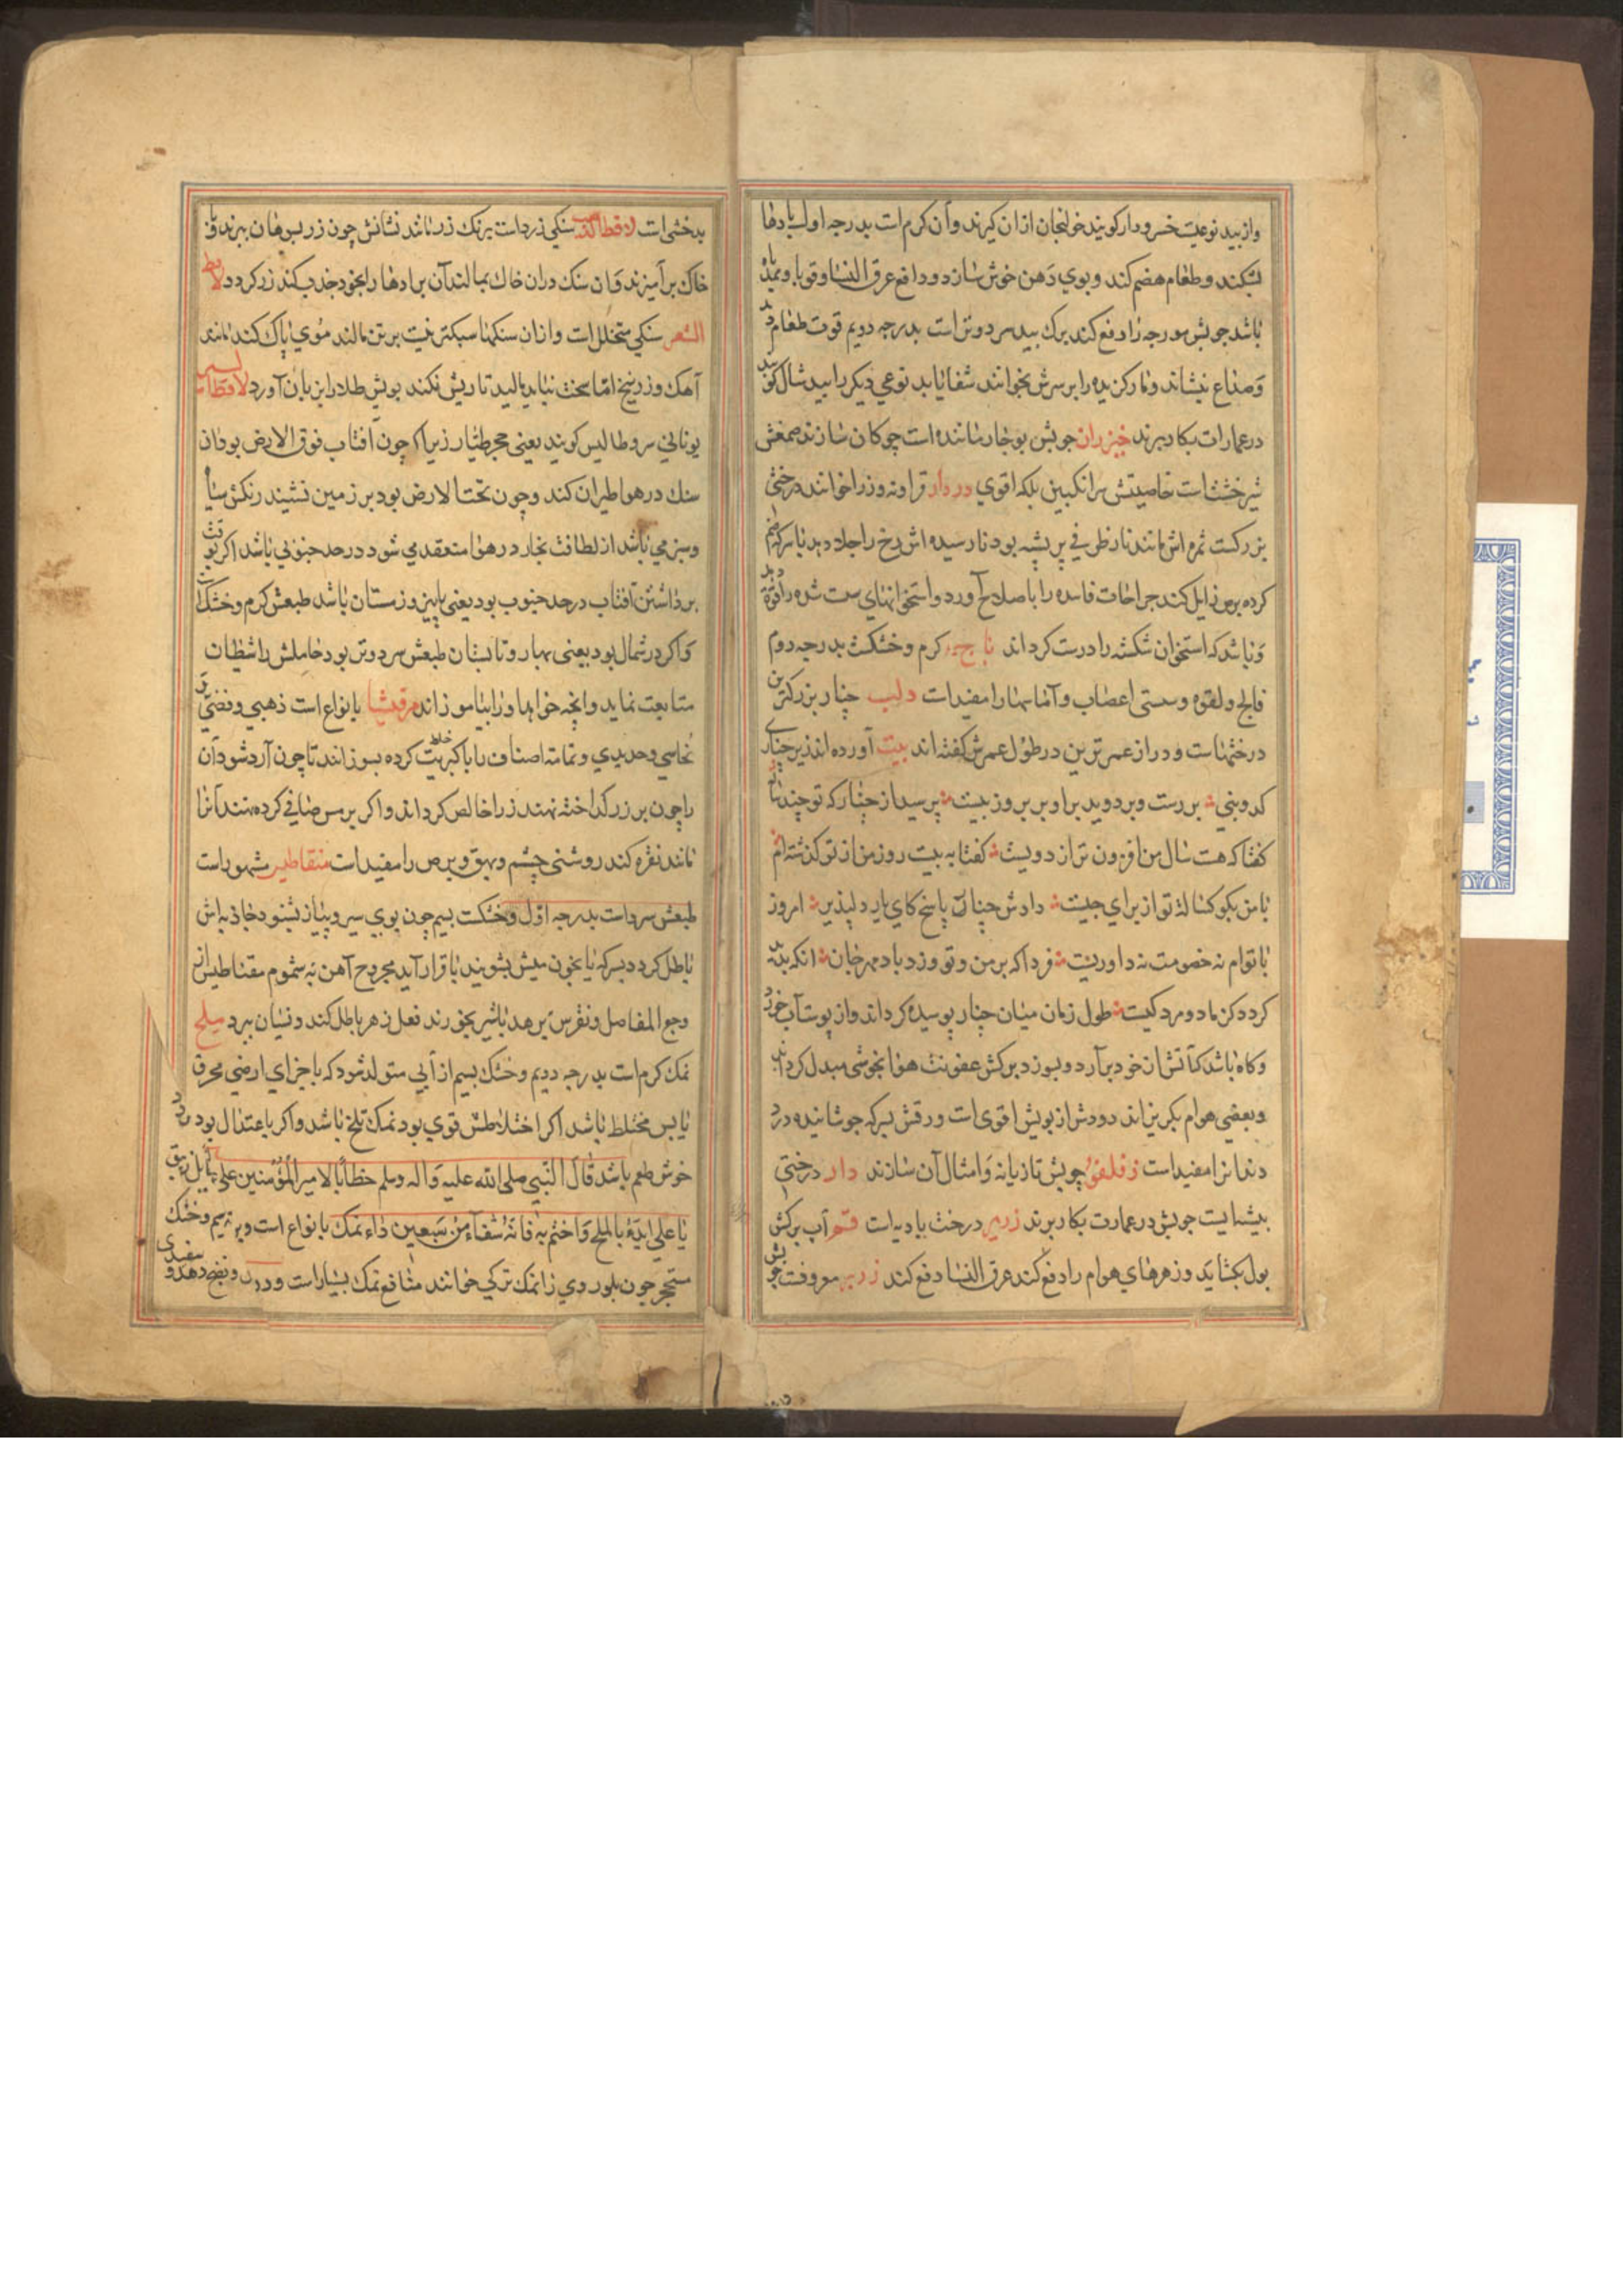 وازبید نوعیت خسرودار کویند خولنجان ازان کیرند وآن کرم است بدرجه اول بادها
بشکند وطعام هضم کند وبوی دهن خوش سازد ودافع عرق النسا وقی باه
باشد چوبش مورجه را دفع کند برک بید سرد وتر است بدرجه دویم قوت طعام دهد
وصداع بنشاند ومار کزیده را برسرش بخوانند شفا یابد نوعی دیکر را بید
درعمارات بکار برند خیزران چوبش بوخار مانده است چوکان سازند صمغش
شیرخشت است خاصیتش ترانکبین بلکه اقوی دردار قراونه وزرا خوانند درختی
بزرکست ثمره اش مانند نار ظرفی پر پشه بود نارسیده اش رخ را جلا دهد با سرکه
کرده برص زایل کند جراحات فاسده را باصلاح آورد واستخوانهای سست شده را قوة دهد
وباشد که استخوان شکسته را درست کرداند کرم وخشکست بدرجه دوم
فالج ولقوه وسستی اعصاب وآماسها را مفید است دلب چنار بزرکترین
درختهاست ودراز عمرترین درطول عمرش کفته اند بیت آورده اند زیر چناری
کدو بنی بررست وبردوید براو بر بروز بیست پرسید از چنار که تو چند ساله
کفتا که هست سال من افزون تر از دویست کفتا به بیست روز من از تو کذشته ام
با من بکو کسالة تو از برای چیست دادش چنار پاسخ کای یار دلپذیر امروز
با توام نه خصومت نه داوریست فردا که برمن وتو وزد باد مهرجان انکه پدید
کردد کز ما دو مرد کیست طول زمان میان چنار پوسیده کرداند واز پوست آب خورد
وکاه باشد که آتش از خود برآرد وبسوزد برکش عفونت هوا بخوشی مبدل کرداند
وبعضی هوام بکریزاند دودش از بویش اقوی است ورقش بسرکه جوشانیده درد
دندانرا مفید است چوبش تازیانه وامثال آن سازند دار درختی
بیشه ایست چوبش درعمارت بکار برند درخت بادیه است آب برکش
بول بکشاید وزهرهای هوام را دفع کند عرق النسا دفع کند معروفست
بدخشی است لاقط الذهب سنکی زرد است برنک زر ماند نشانش چون زر بسوهان ببرند وبا
خاک برآمیزند وان سنک دران خاک بمالند آن برادها را بخود جذب کند زر کردد لاقط
الشعر سنکی متخلل است وازان سنکها سبکتر نیست برتن مالند موی پاک کند مانند
آهک وزرنیخ اما سخت نباید مالید تا ریش نکند بویش طلا درابزبان آورد
یونانی سروطالیس کویند یعنی حجر طیار زیرا که چون آفتاب فوق الارض بود آن
سنک درهوا طیران کند وچون تحت الارض بود بر زمین نشیند رنکش سیاه
وسبز می باشد از لطافت بخار درهوا منعقد می شود درحد جنوبی باشد اکر بوقت
برداشتن آفتاب درحد جنوب بود یعنی پاییز وزمستان باشد طبعش کرم وخشک است
واکر در شمال بود یعنی بهار وتابستان طبعش سرد وتر بود حاملش را شیطان
متابعت نماید وانچه خواهد اورا بیاموزاند مرقشیشا بانواع است ذهبی وفضی
نحاسی وحدیدی وتمامت اصناف را با کبریت خلط کرده بسوزانند تا چون آرد شود آن
را چون بر زر کداخته نهند زر را خالص کرداند واکر بر مس صافی کرده نهند آنرا
مانند نقره کند روشنی چشم وبهق وبرص را مفید است مغناطیس مشهور است
طبعش سرد است بدرجه اول وخشکست بسیم چون بوی سیر وپیاز بشنود جاذبه اش
باطل کردد بسرکه یا بخون میش بشویند باقرار آید مجروح آهن به سموم مقناطیس از
وجع المفاصل ونقرس برهد باشیر بخورند فعل زهر باطل کند ونسیان ببرد ملح
نمک کرم است بدرجه دویم وخشک بسیم از آبی متولد شود که با اجزای ارضی محرق
یابس مختلط باشد اکر اختلاطش قوی بود نمک تلخ باشد واکر باعتدال بود
خوش طعم باشد قال النبی صلی الله علیه واله وسلم خطابا لامیر المؤمنین علی
یا علی ابدء بالملح واختم به فانه شفاء من سبعین داء نمک بانواع است
متحجر چون بلور وی را نمک ترکی خوانند منافع نمک بسیار است ودر